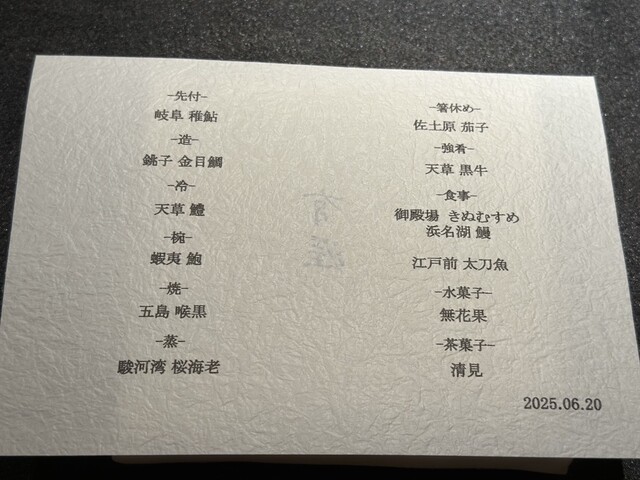 -先付-
岐阜 稚鮎
-造-
銚子 金目鯛
-冷-
天草 鱧
-椀-
蝦夷 鮑
-焼-
五島 喉黒
-蒸-
駿河湾 桜海老
-箸休め-
佐土原 茄子
-強肴-
天草 黒牛
-食事-
御殿場 きぬむすめ
浜名湖 鰻
江戸前 太刀魚
-水菓子-
無花果
-茶菓子-
清見
2025.06.20